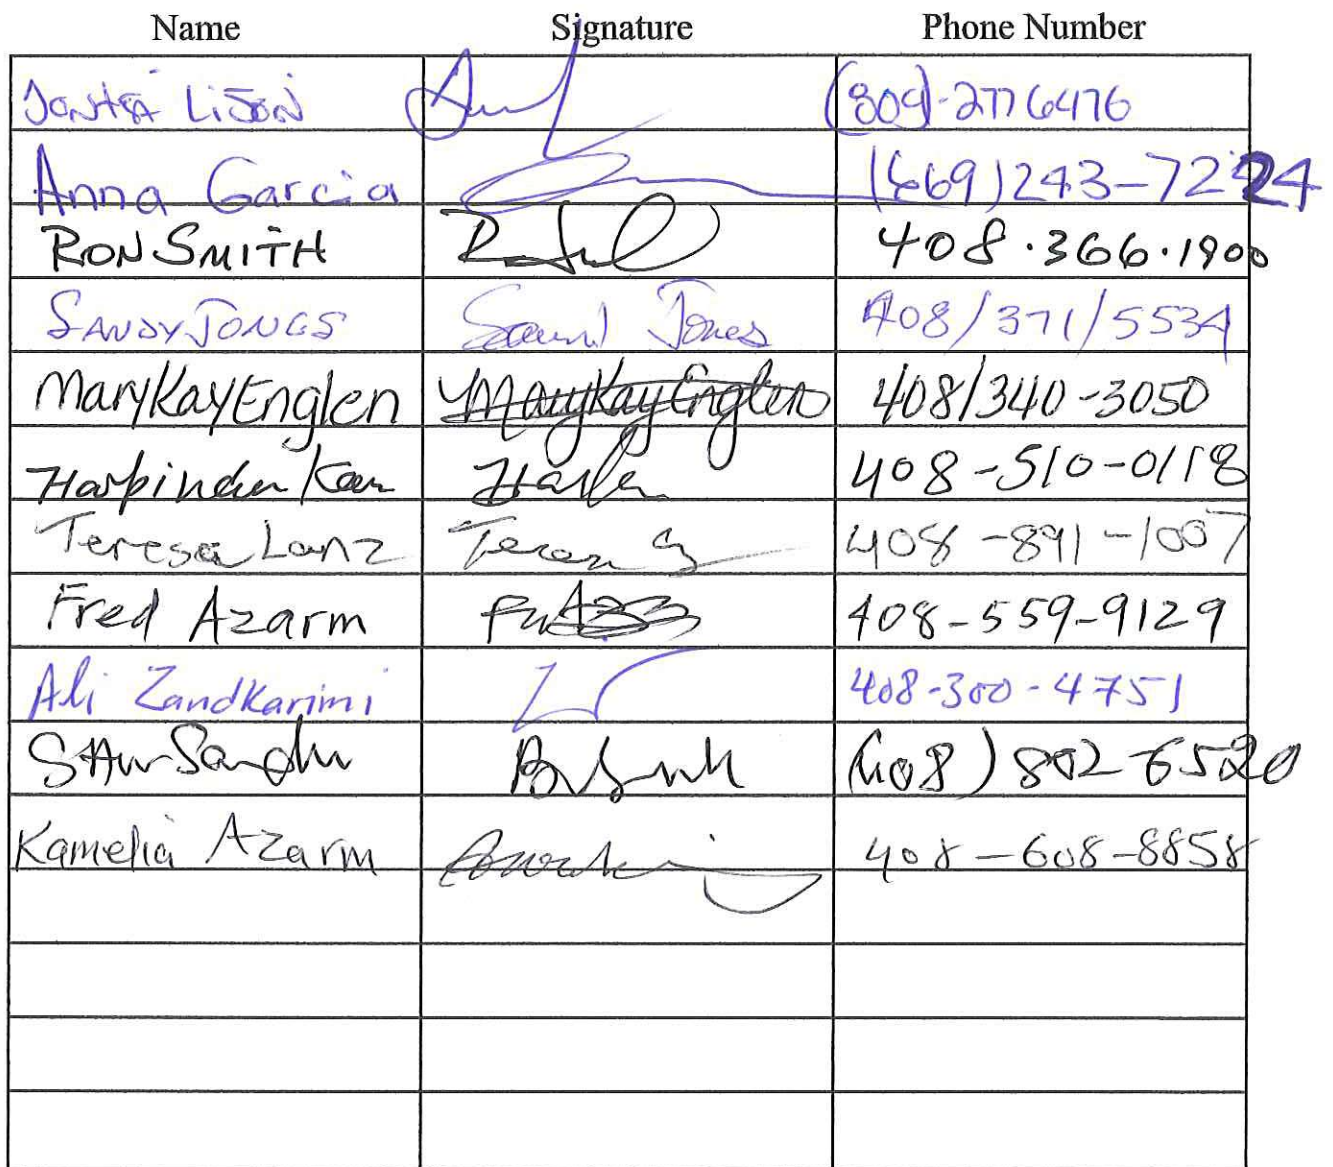 Name Signature Phone Number
(809)-277 6476
Anna Garcia (669)243-7224
RON SMITH 408.366.1900
SANDY JONES Jones 408/371/5534
MaryKayEnglen MaryKayEnglen 408/340-3050
Harpinder Kaur 408-510-0118
Teresa Lanz Teresa 408-891-1007
Fred Azarm 408-559-9129
Ali Zandkarimi 408-300-4751
Sandhu (408) 802-6520
Kamelia Azarm 408-608-8858